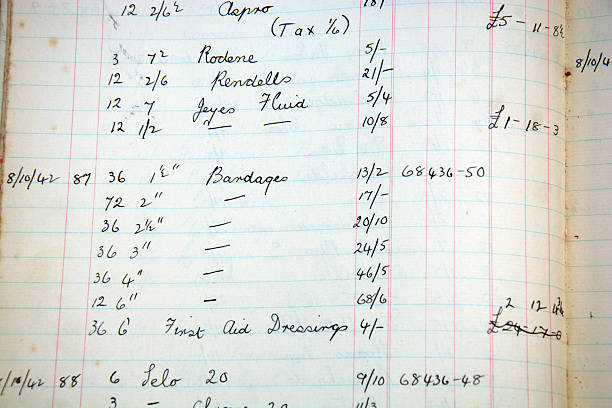 12 2/6½ Aspro 18/
(Tax 1/6) £5 - 11 - 8½
3 7½ Rodene 5/-
12 2/6 Rendells 21/- 8/10/4
12 - 7 Jeyes Fluid 5/4
12 1/2 " — — 10/8 £1 - 18 - 3
8/10/42 87 36 1½" Bandages 13/2 68436-50
72 2" — 17/-
36 2½" — 20/10
36 3" — 24/5
36 4" — 46/5
12 6" — 68/6
2 12
36 6' First Aid Dressings 4/- £
/10/42 88 6 Selo 20 9/10 68436-48
3 — 20 11/3